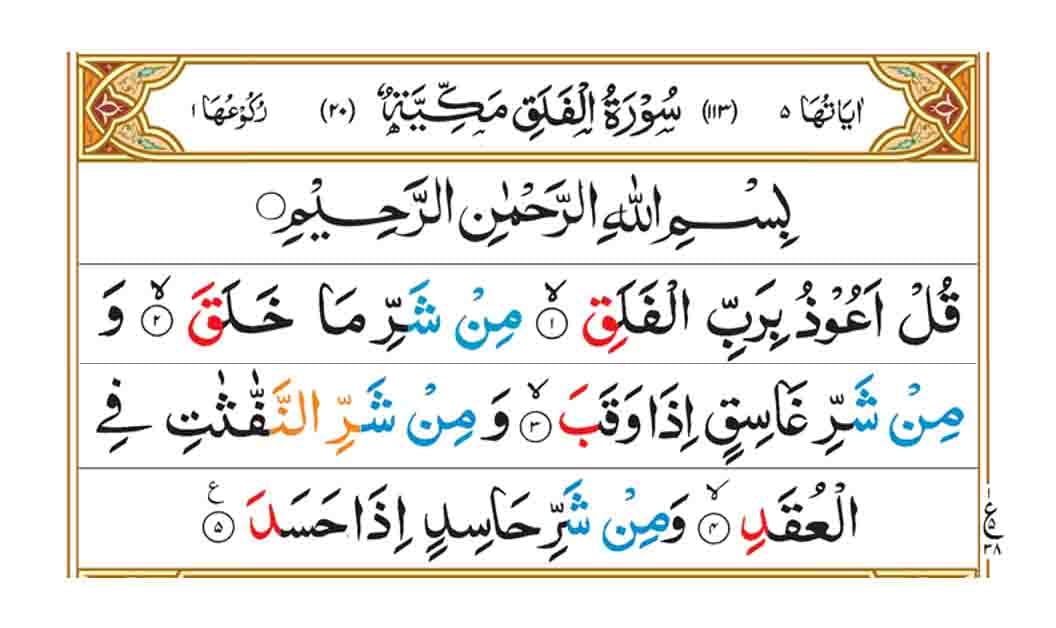 اٰيَاتُهَا ۵ (۱۱۳) سُوْرَةُ الْفَلَقِ مَكِّيَّةٌ (۲۰) رُكُوْعُهَا ۱
بِسْمِ اللّٰهِ الرَّحْمٰنِ الرَّحِيْمِ ○
قُلْ اَعُوْذُ بِرَبِّ الْفَلَقِ ۙ‏﴿۱﴾ مِنْ شَرِّ مَا خَلَقَ ۙ‏﴿۲﴾ وَ
مِنْ شَرِّ غَاسِقٍ اِذَا وَقَبَ ۙ‏﴿۳﴾ وَ مِنْ شَرِّ النَّفّٰثٰتِ فِي
الْعُقَدِ ۙ‏﴿۴﴾ وَمِنْ شَرِّ حَاسِدٍ اِذَا حَسَدَ ﴿۵﴾ ع
۱
ع
۵
۳۸